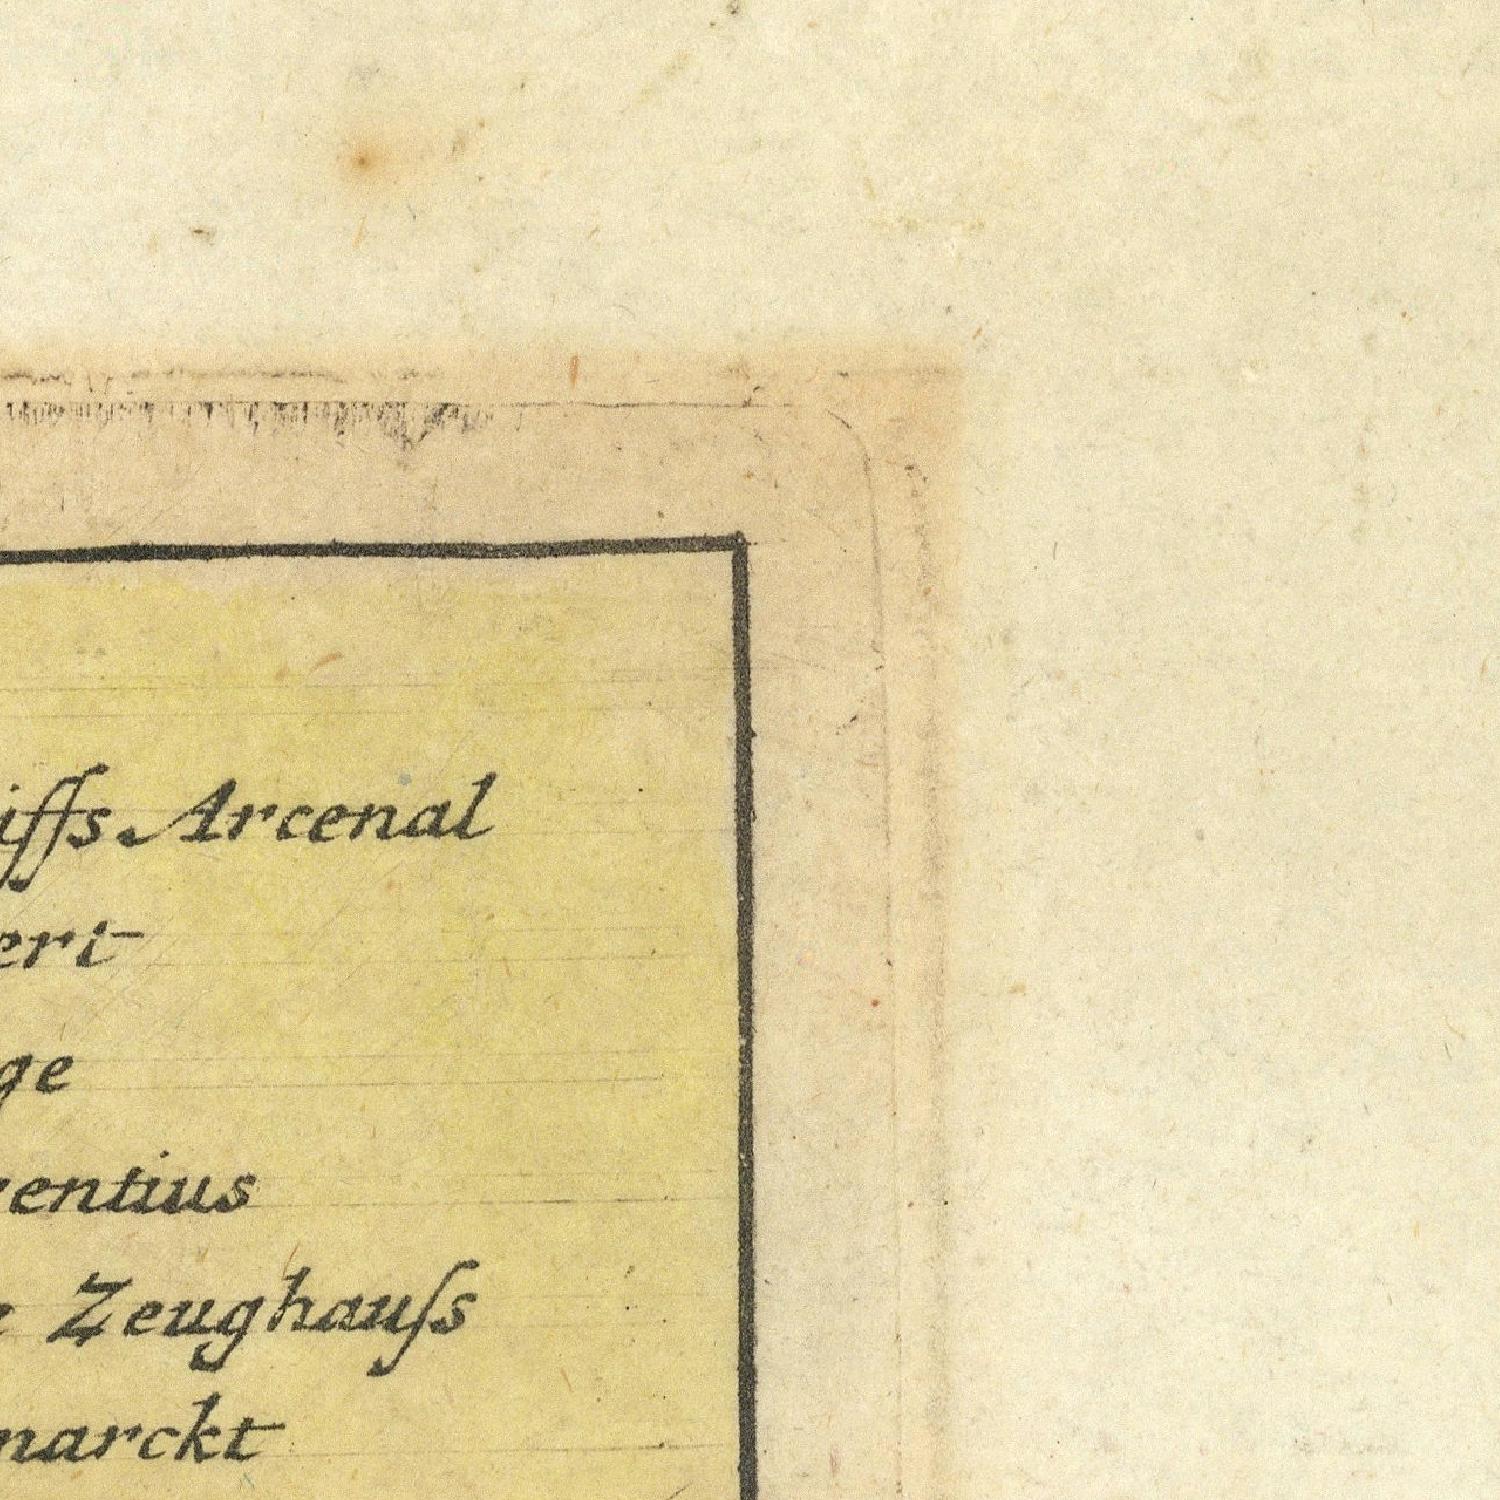 iffs Arcenal
ert
ge
entius
Zeughauſs
marckt